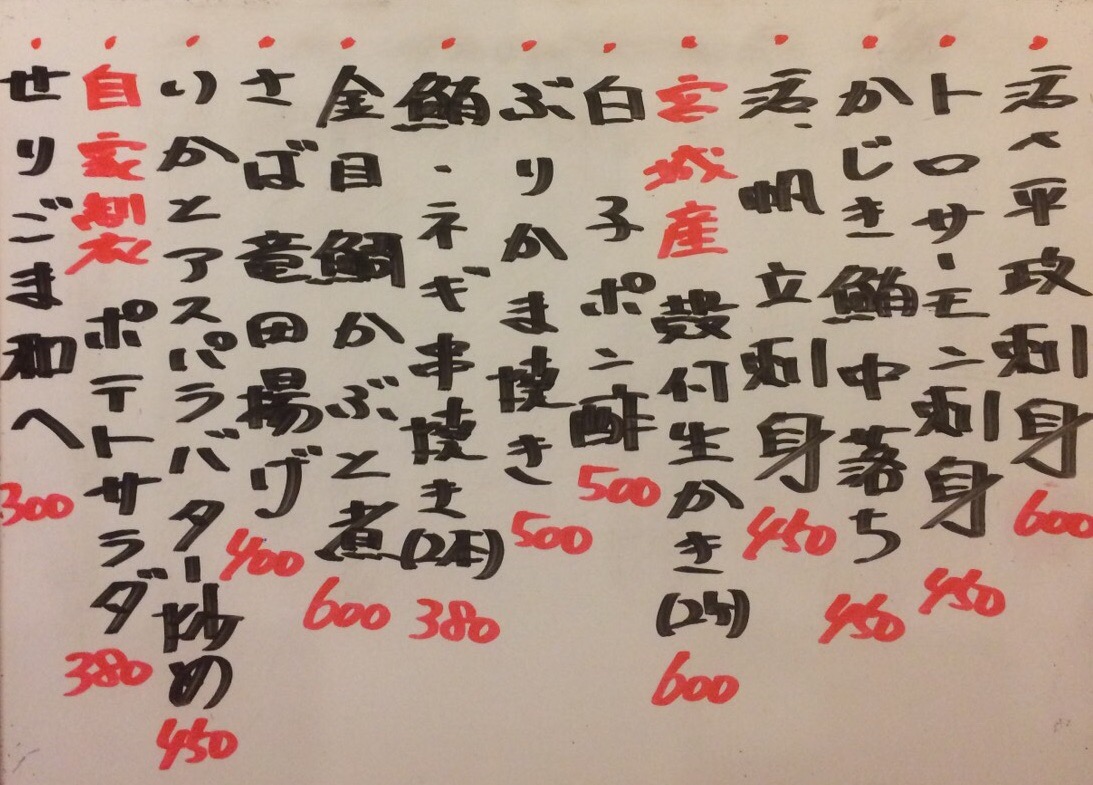 活〆平政刺身 600
トロサーモン刺身 450
かじき鮪中落ち 450
活・帆立刺身 450
宮城産 殻付生かき(2ヶ) 600
白子ポン酢 500
ぶりかま焼き 500
鮪・ネギ串焼き(2本) 380
金目鯛かぶと煮 600
さば竜田揚げ 400
いかとアスパラバター炒め 450
自家製 ポテトサラダ 380
せりごま和へ 300